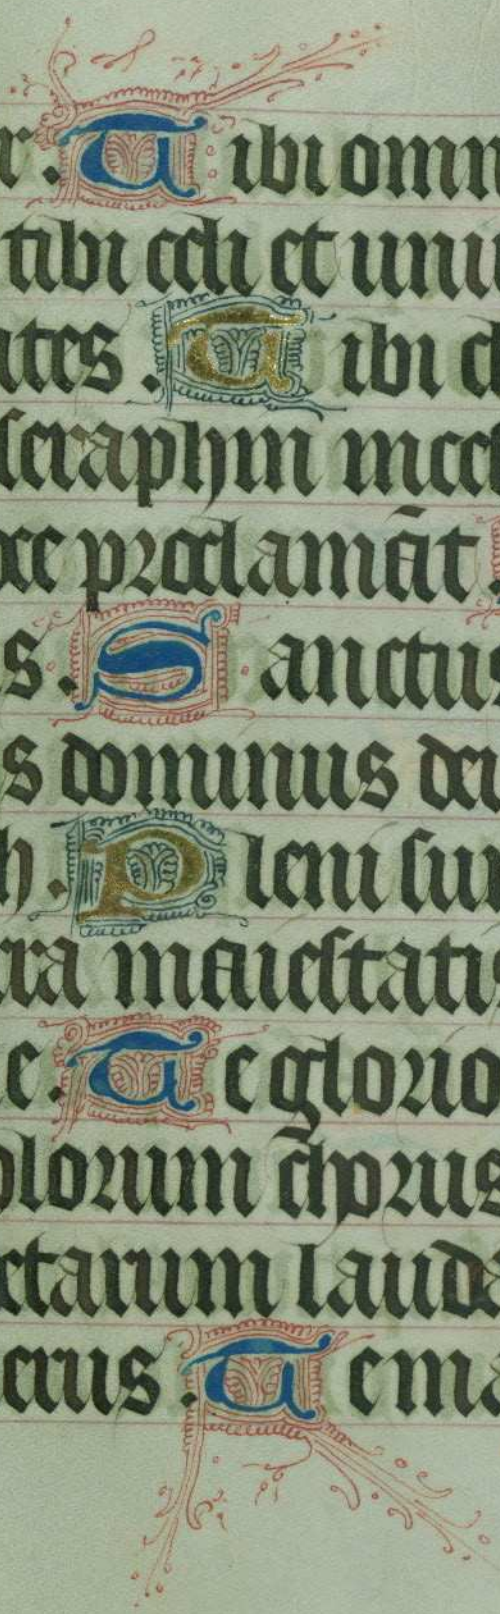 r. Tibi omn
tibi celi et uniu
ates. Tibi ch
seraphin inces
oce proclamāt
s. Sanctus
s dominus deu
h. Pleni sun
rra maiestatis
e. Te glorio
olorum chorus
etarum lauda
ercitus. Te ma